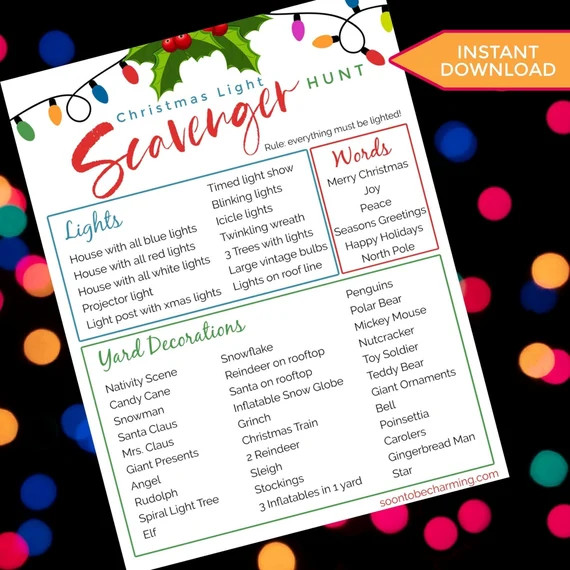 INSTANT
DOWNLOAD
Christmas Light
Scavenger HUNT
Rule: everything must be lighted!
Lights
House with all blue lights
House with all red lights
House with all white lights
Projector light
Light post with xmas lights
Timed light show
Blinking lights
Icicle lights
Twinkling wreath
3 Trees with lights
Large vintage bulbs
Lights on roof line
Words
Merry Christmas
Joy
Peace
Seasons Greetings
Happy Holidays
North Pole
Yard Decorations
Nativity Scene
Candy Cane
Snowman
Santa Claus
Mrs. Claus
Giant Presents
Angel
Rudolph
Spiral Light Tree
Elf
Snowflake
Reindeer on rooftop
Santa on rooftop
Inflatable Snow Globe
Grinch
Christmas Train
2 Reindeer
Sleigh
Stockings
3 Inflatables in 1 yard
Penguins
Polar Bear
Mickey Mouse
Nutcracker
Toy Soldier
Teddy Bear
Giant Ornaments
Bell
Poinsettia
Carolers
Gingerbread Man
Star
soontobecharming.com